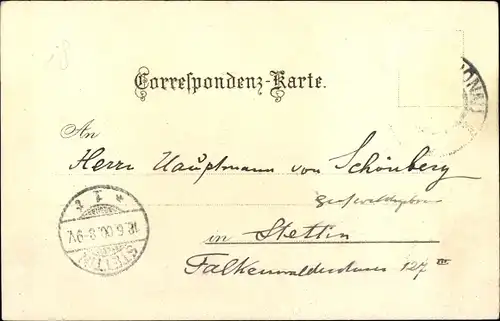 Correspondenz-Karte.
An
Herrn Hauptmann von Schönberg
in Stettin
Falkenwalderstrasse 127 III
STETTIN
18.6.00.8-9V.
* 1 t